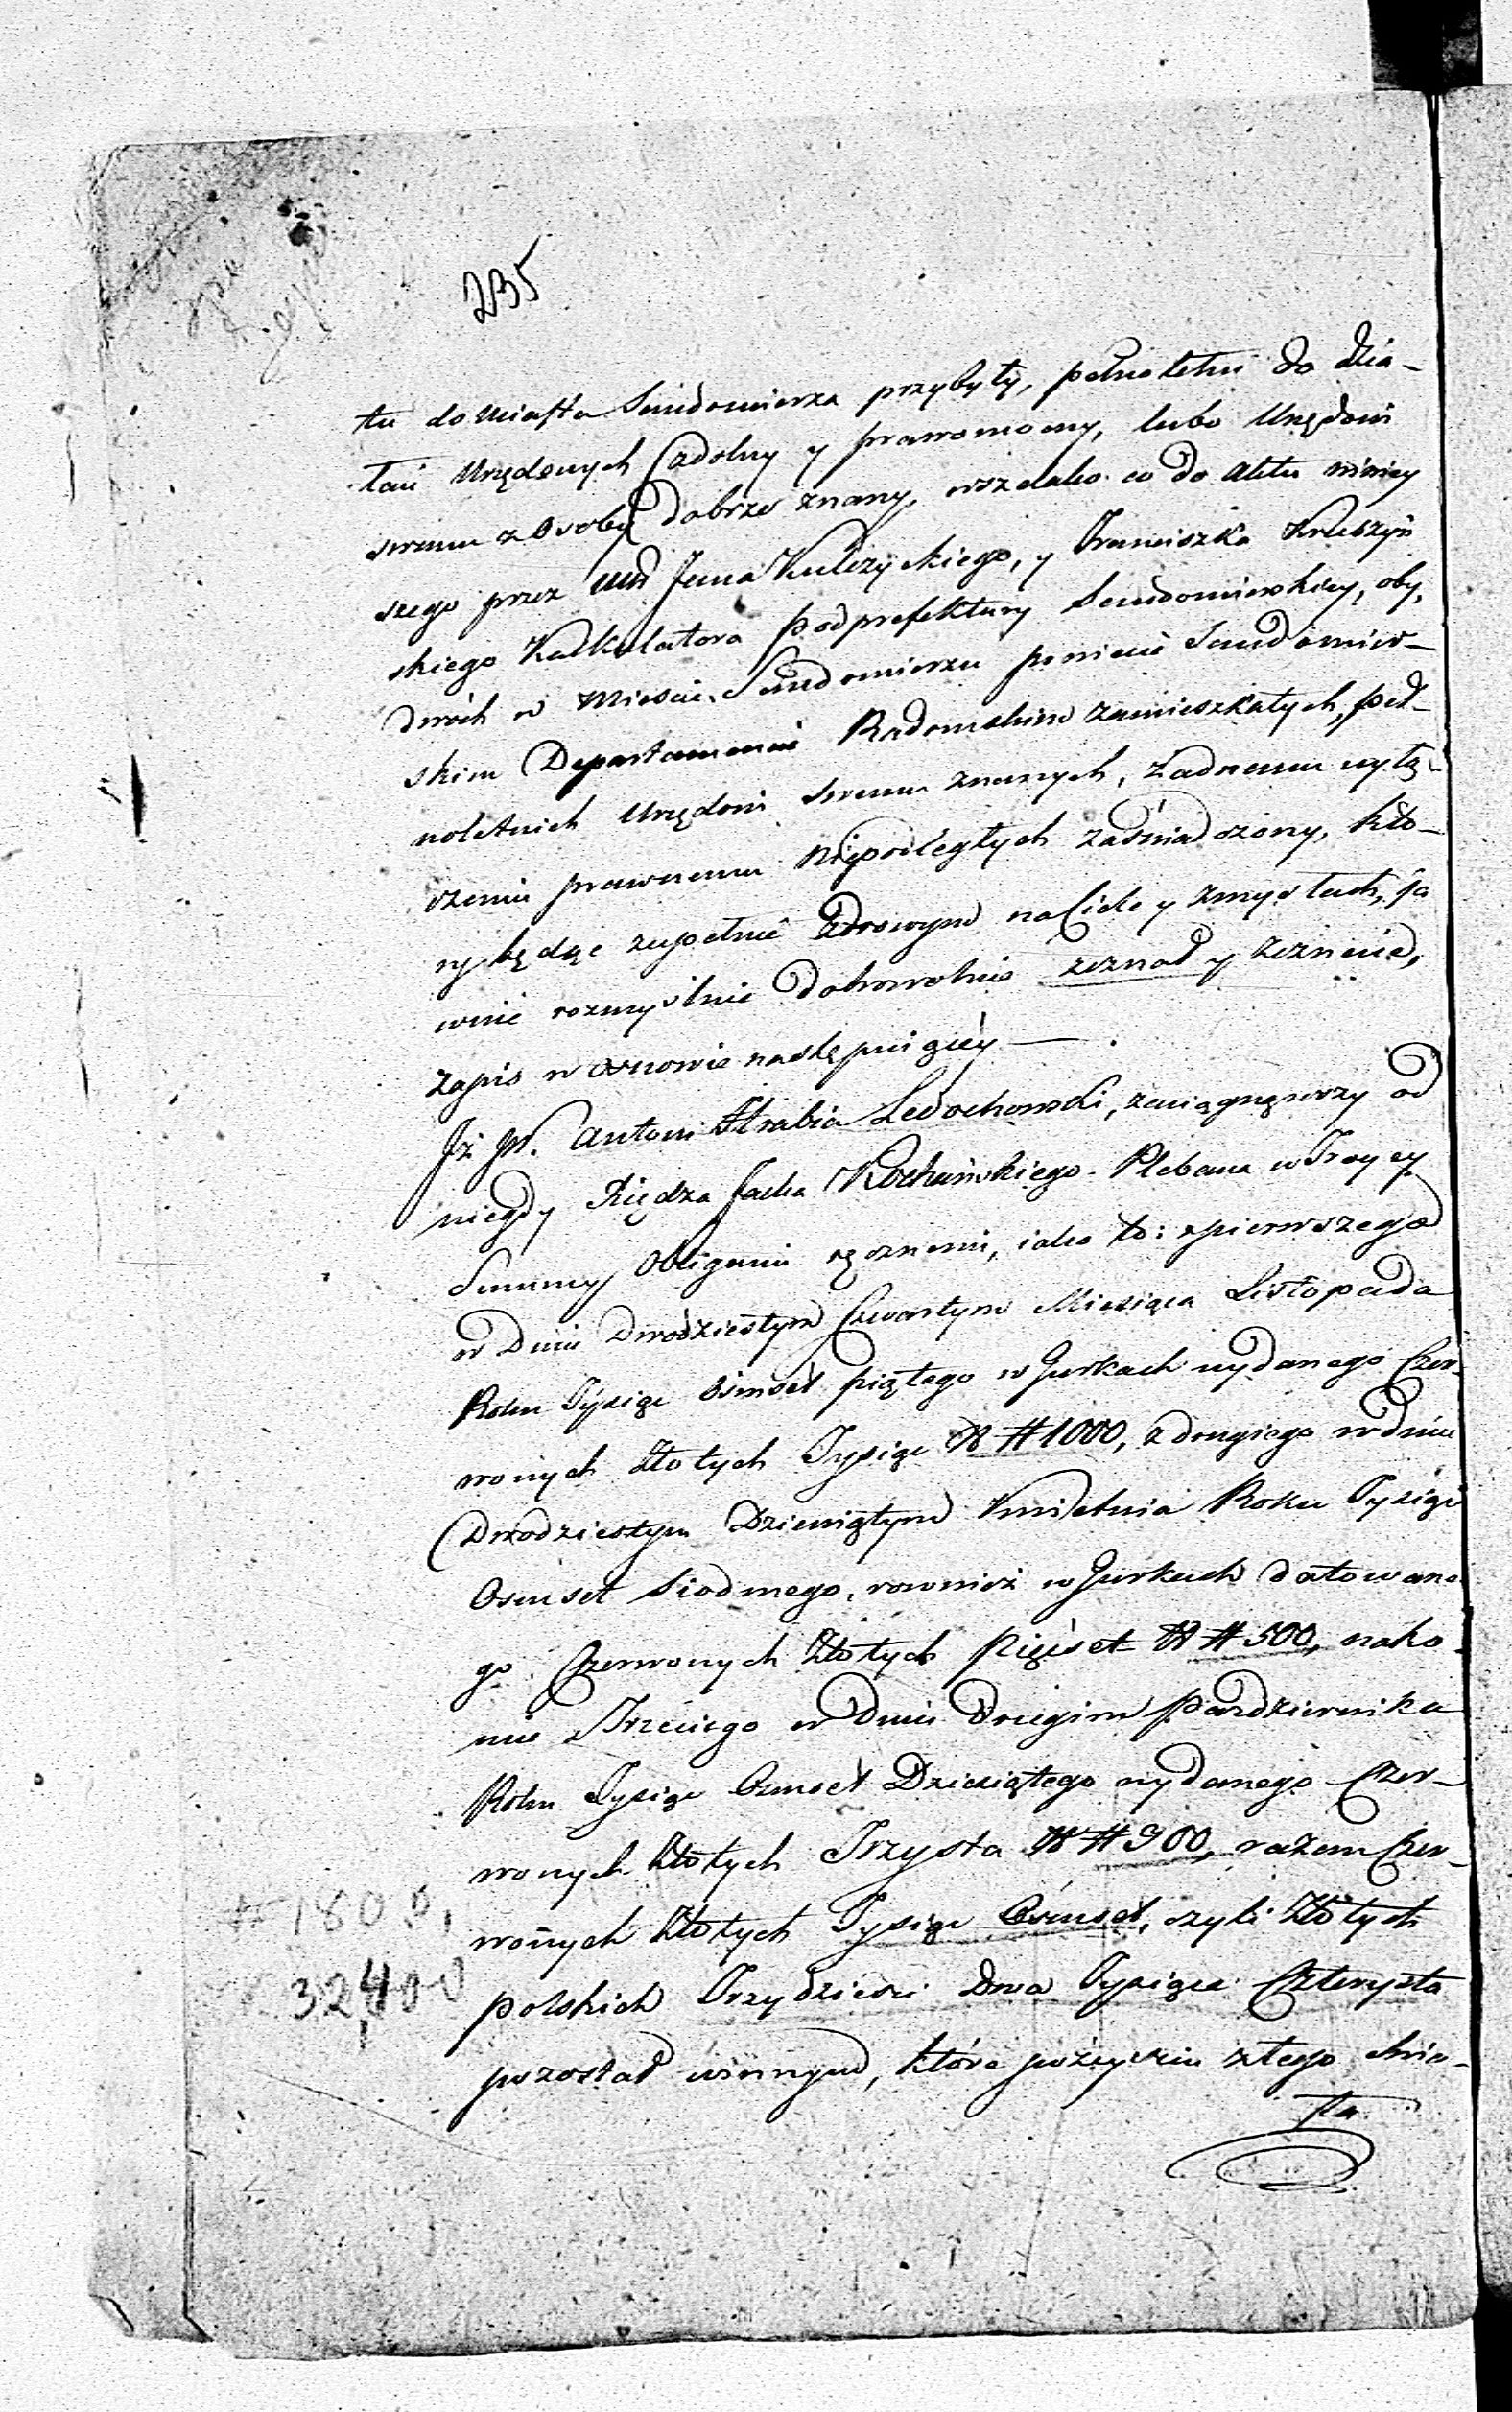 235
tu do Miasta Sandomierza przybyły, pełnoletni do dzia-
łań Urzędowych zdolny y prawomocny, lubo Urzędowi
swemu z Osoby dobrze znany, wszelako co do Aktu niniey
szego przez Jana Kulczyckiego, y Franciszka Kruszyń
skiego Kalkulatora Podprefektury Sandomierskiey, oby,
dwóch w Mieście Sandomierzu powiecie Sandomier-
skim Departamencie Radomskim zamieszkałych, peł-
noletnich Urzędowi swemu znanych, żadnemu wyłą-
czeniu prawnemu niepodległych zaświadczony, któ-
ry będąc zupełnie zdrowym na Ciele y zmysłach, ja
wnie rozmyślnie dobrowolnie zeznał y zeznaie,
zapis w osnowie następuiącey —
Iż JW. Antoni Hrabia Ledochowski, zaciągnąwszy od
niegdy Xiędza Jacka Kochańskiego Plebana w Troycy
Summy Obligami ręcznemi, iako to: z pierwszego
w Dniu Dwódziestym Czwartym Miesiąca Listopada
Roku Tysiąc Ośmset piątego w Gurkach wydanego Czer-
wonych Złotych Tysiąc ## 1000, z drugiego w dniu
Dwodziestym Dziewiątym Kwietnia Roku Tysiąc
Osmset Siodmego, rownież w Gurkach datowane
go. Czerwonych Złotych Pięćset ## 500, nako-
niec Trzeciego w Dniu Drugim Pazdziernika
Roku Tysiąc Osmset Dziesiątego wydanego Czer-
wonych Złotych Trzysta ## 300, razem Czer-
wonych Złotych Tysiąc Ośmset, czyli Złotych
polskich Trzydzieści Dwa Tysiące Czterysta
pozostał winnym, które po zeyściu z tego Świa-
ta
# 1800,
32,400